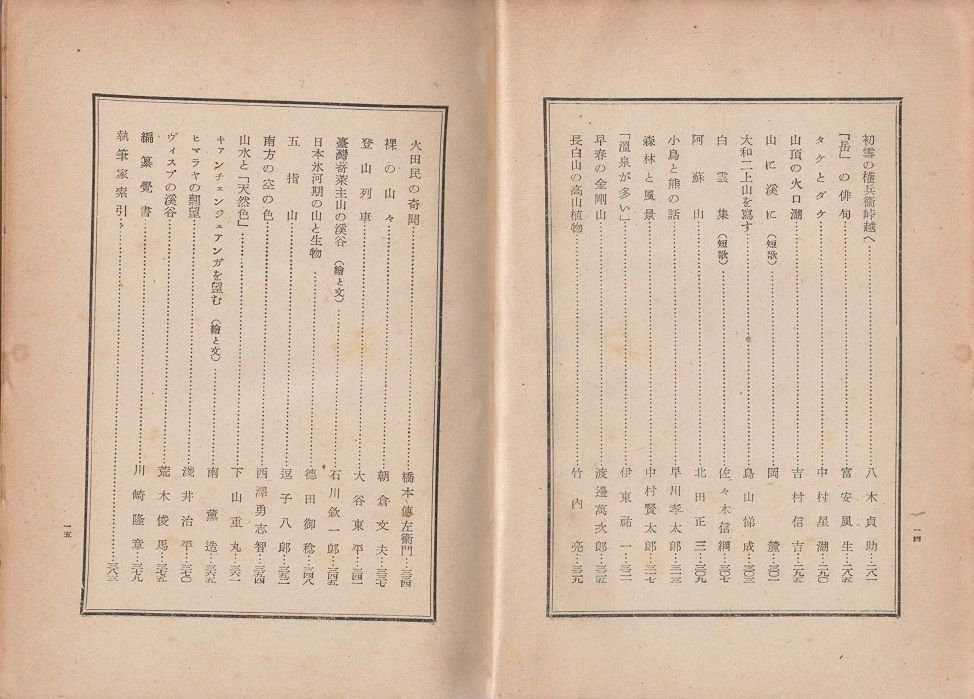 初雪の權兵衞峠越へ……八木貞助…二八一
「岳」の俳句……富安風生…二八五
タケとダケ……中村星湖…二九〇
山頂の火口湖……吉村信吉…二九五
山に溪に（短歌）……岡麓…三〇一
大和二上山を寫す……鳥山悌成…三〇三
白雲集（短歌）……佐々木信綱…三〇七
阿蘇山……北田正三…三〇九
小鳥と熊の話……早川孝太郎…三一三
森林と風景……中村賢太郎…三一七
「溫泉が多い」……伊東祐一…三二一
早春の金剛山……渡邊萬次郎…三二五
長白山の高山植物……竹內亮…三二九
一四
火田民の奇聞……橋本傳左衞門…三三四
裸の山々……朝倉文夫…三三七
登山列車……大谷東平…三四一
臺灣奇萊主山の溪谷（繪と文）……石川欽一郞…三四五
日本氷河期の山と生物……德田御稔…三四八
五指山……逗子八郞…三五一
南方の空の色……西澤勇志智…三五四
山水と「天然色」……下山重丸…三六一
キアンチェンジュアンガを望む（繪と文）……南薰造…三六五
ヒマラヤの翹望……淺井治平…三七〇
ヴィスプの溪谷……荒木俊馬…三七五
編纂覺書……川崎隆章…三七九
執筆家索引……三八三
一五